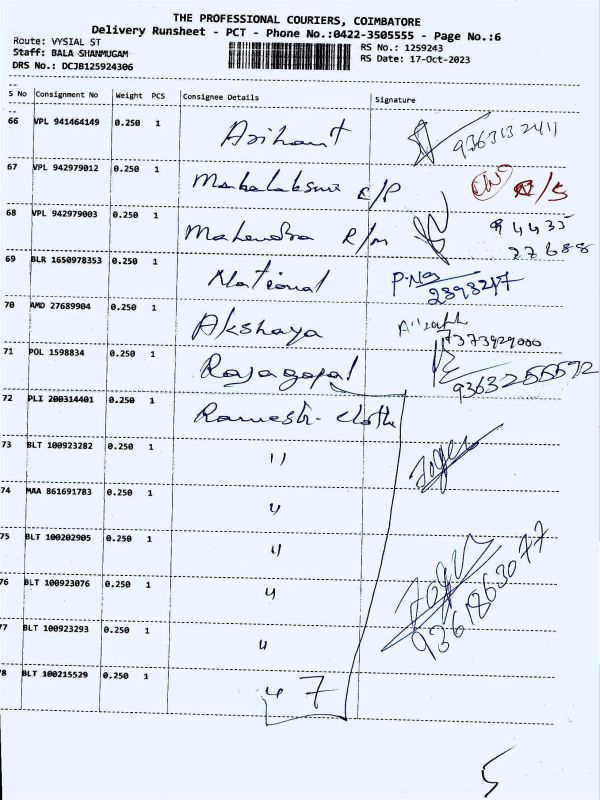 THE PROFESSIONAL COURIERS, COIMBATORE
Delivery Runsheet - PCT - Phone No.:0422-3505555 - Page No.:6
Route: VYSIAL ST
Staff: BALA SHANMUGAM
DRS No.: DCJB125924306
RS No.: 1259243
RS Date: 17-Oct-2023
S No Consignment No Weight PCS Consignee Details Signature
66 VPL 941464149 0.250 1 Arihant 9363132411
67 VPL 942979012 0.250 1 R/P R/S
68 VPL 942979003 0.250 1 Mahendra R/m 94435
27688
69 BLR 1650978353 0.250 1 National P-No
2393247
70 AMD 27689904 0.250 1 Akshaya
7373929000
71 POL 1598834 0.250 1 Rajagopal
9363255592
72 PLI 200314401 0.250 1 Ramesh. cloth
73 BLT 100923282 0.250 1 "
74 MAA 861691783 0.250 1 "
75 BLT 100202905 0.250 1 "
76 BLT 100923076 0.250 1 "
9361863077
77 BLT 100923293 0.250 1 "
78 BLT 100215529 0.250 1 " 7
5